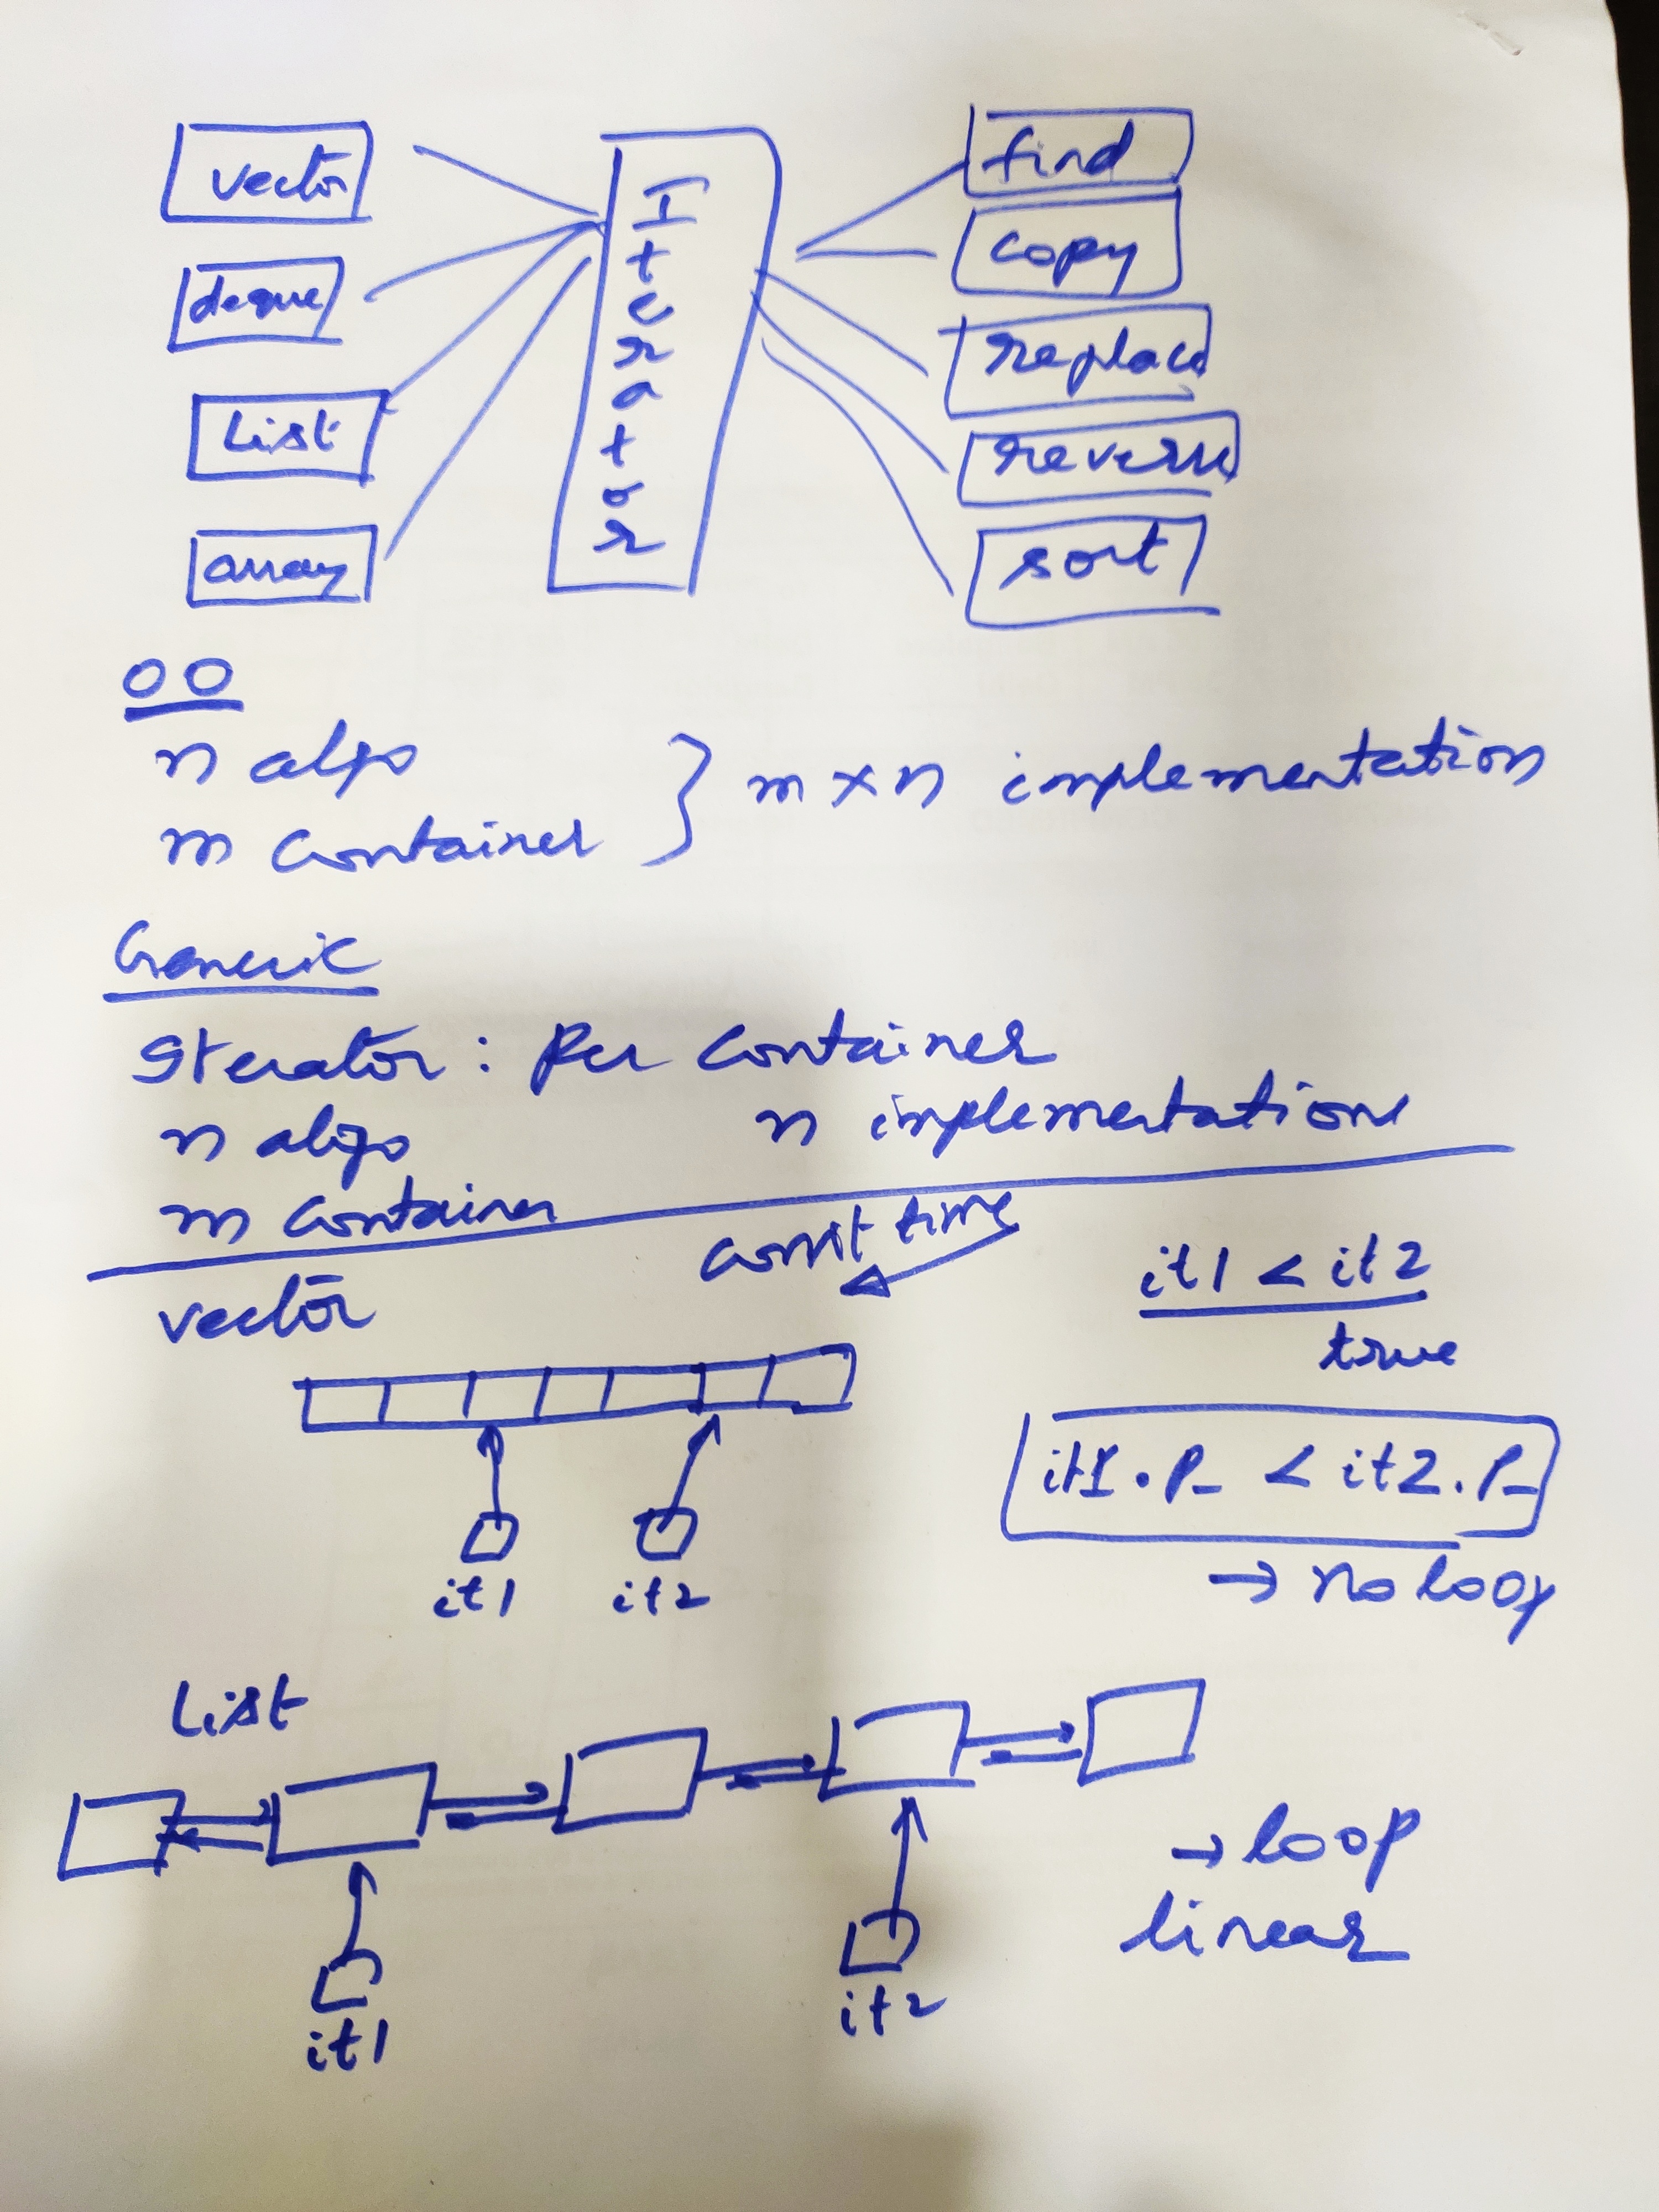 vector
deque
List
array
Iterator
find
copy
replace
reverse
sort
OO
n algo
m container } m x n implementation
Generic
Iterator : Per Container
n algo n implementations
m container
const time
vector
it1 < it2
true
it1.p_ < it2.p_
→ no loop
it1 it2
List
→ loop
linear
it1 it2